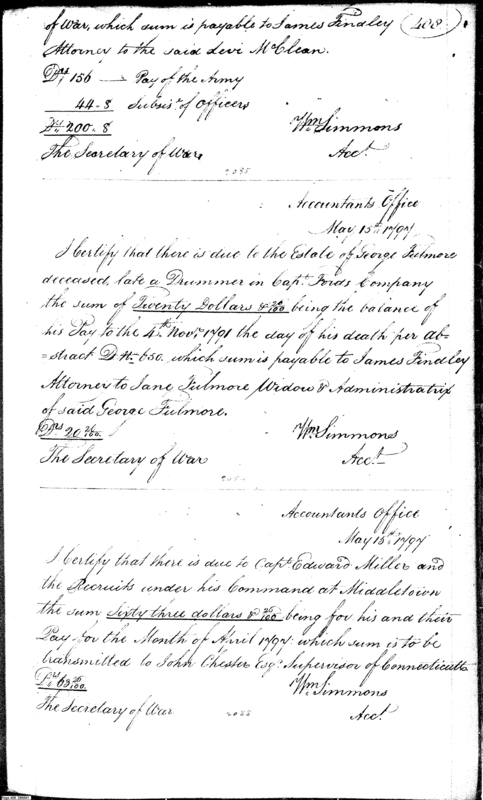 of War, which sum is payable to James Findley
408
Attorney to the said Levi McClean.
Drs 156 — Pay of the Army
44.8 Subsist of Officers
Drs 200.8
Wm Simmons
The Secretary of War
Acct.
Accountants Office
May 15th 1797
I Certify that there is due to the Estate of George Fulmore
deceased, late a Drummer in Capt. Fords Company
the sum of Twenty Dollars & /100 being the balance of
his Pay to the 4th Novr 1791 the day of his death per ab-
=stract D No 650. which sum is payable to James Findley
Attorney to Jane Fulmore Widow & Administratrix
of said George Fulmore.
Drs 20 /100.
Wm Simmons
The Secretary of War
Acct.
Accountants Office
May 15th 1797
I Certify that there is due to Capt Edward Miller and
the Recruits under his Command at Middletown
the sum Sixty three dollars & 26/100 being for his and their
Pay for the Month of April 1797. which sum is to be
transmitted to John Chester Esqr. Supervisor of Connecticutt
Drs 63 26/100.
Wm Simmons
The Secretary of War
Acct.